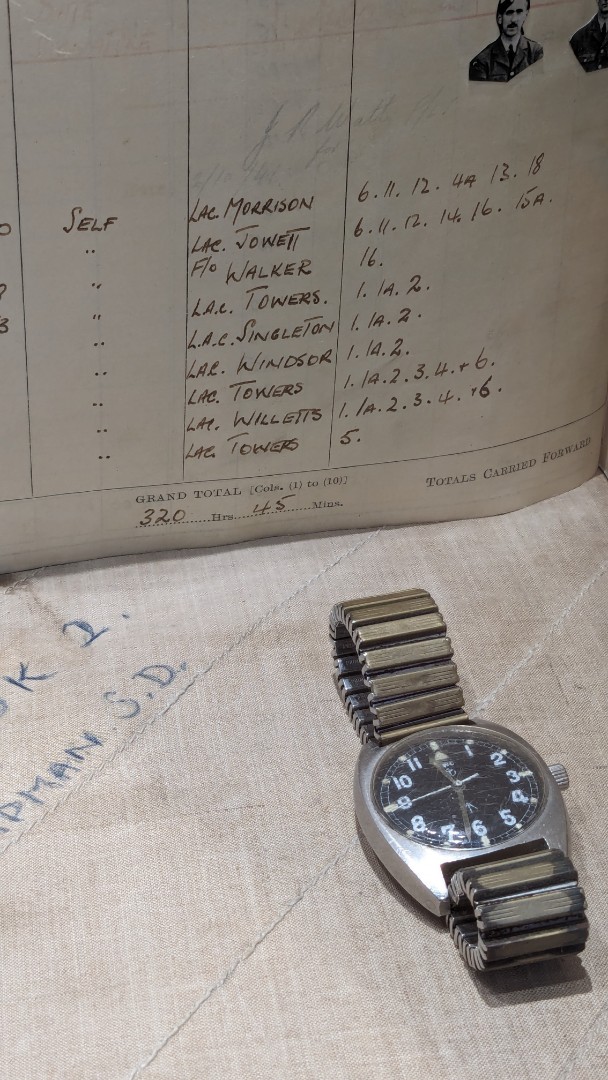 SELF LAC. MORRISON 6. 11. 12. 4A 13. 18
.. LAC. JOWETT 6. 11. 12. 14. 16. 15A.
.. F/O WALKER 16.
" L.A.C. TOWERS. 1. 1A. 2.
.. L.A.C. SINGLETON 1. 1A. 2.
.. LAC. WINDSOR 1. 1A. 2.
.. LAC. TOWERS 1. 1A. 2. 3. 4. + 6.
.. LAC. WILLETTS 1. 1A. 2. 3. 4. + 6.
.. LAC. TOWERS 5.
GRAND TOTAL [Cols. (1) to (10)] TOTALS CARRIED FORWARD
320 Hrs. 45 Mins.
1.
S.D.
11 1 2 3 4 5 6 7 8 9 10